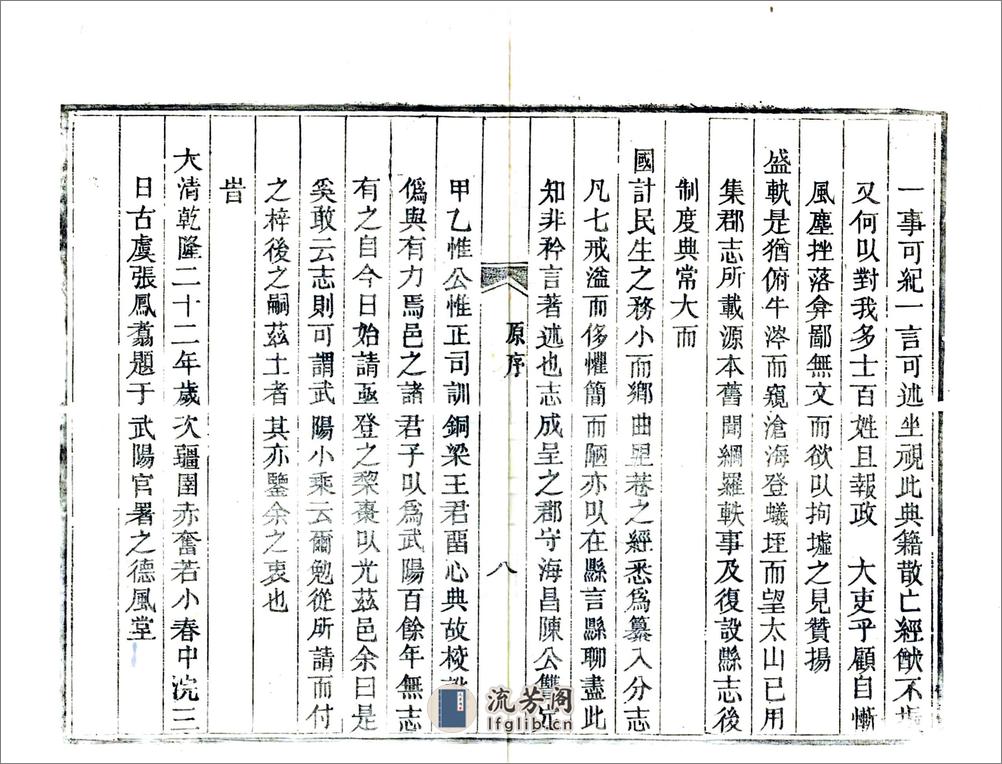 一事可紀一言可述坐視此典籍散亡經猷不
又何以對我多士百姓且報政 大吏乎顧自慚
風塵挫落弇鄙無文而欲以拘墟之見贊揚
盛軌是猶俯牛涔而窺滄海登蟻垤而望太山已用
集郡志所載源本舊聞綱羅軼事及復設縣志後
制度典常大而
國計民生之務小而鄉曲里巷之經悉爲纂入分志
凡七戒溢而侈懼簡而陋亦以在縣言縣聊盡此
知非矜言著述也志成呈之郡守海昌陳公雙
原序
八
甲乙惟公惟正司訓銅梁王君畱心典故校
僞與有力焉邑之諸君子以爲武陽百餘年無志
有之自今日始請亟登之棃棗以光茲邑余曰是
奚敢云志則可謂武陽小乘云爾勉從所請而付
之梓後之嗣茲土者其亦鑒余之衷也
旹
大清乾隆二十二年歲次彊圉赤奮若小春中浣三
日古虞張鳳翥題于武陽官署之德風堂
流芳阁
lfglib.cn